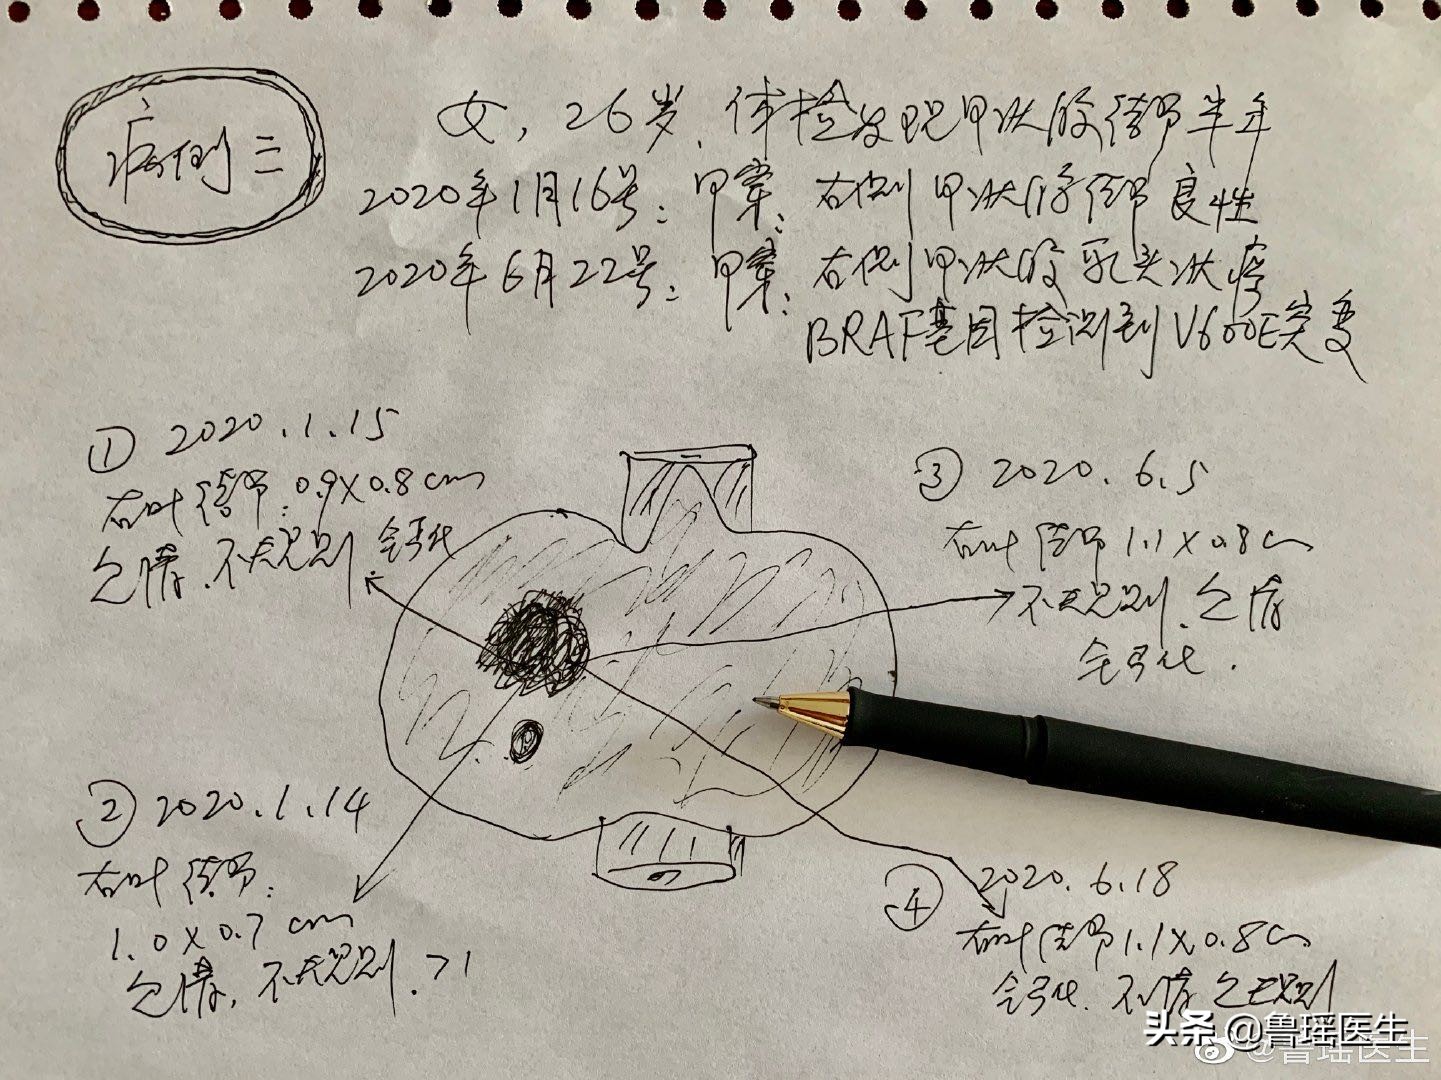 病例三
女，26岁，体检发现甲状腺结节半年
2020年1月16号：甲穿：右侧甲状腺结节良性
2020年6月22号：甲穿：右侧甲状腺乳头状癌
BRAF基因检测到V600E突变
① 2020.1.15
右叶结节：0.9×0.8cm
欠清，不规则 含钙化
③ 2020.6.5
右叶结节1.1×0.8cm
不规则，欠清
含钙化．
② 2020.1.14
右叶结节：
1.0×0.7cm
欠清，不规则．>1
④ 2020.6.18
右叶结节1.1×0.8cm
含钙化．不清 欠规则
头条 @鲁瑶医生
@鲁瑶医生